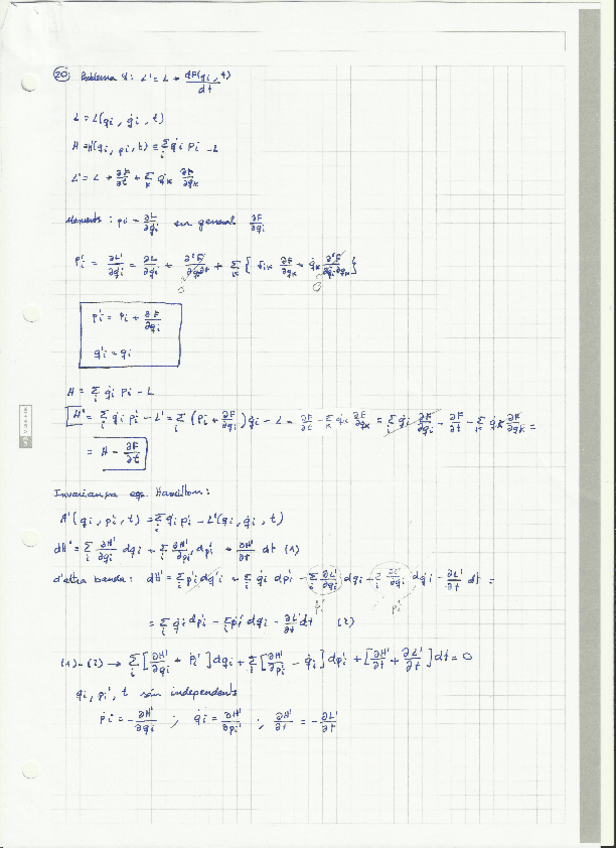 20) Problema 8: L' = L + dF(qi, t)/dt
L = L(qi, q̇i, t)
H = H(qi, pi, t) = Σi q̇i pi - L
L' = L + ∂F/∂t + Σk q̇k ∂F/∂qk
pi = ∂L/∂q̇i en general ∂F/∂qi
pi' = ∂L'/∂q̇i = ∂L/∂q̇i + ∂²F/∂q̇i∂t + Σk { δik ∂F/∂qk + q̇k ∂²F/∂q̇i∂qk }
0 0
pi' = pi + ∂F/∂qi
q'i = qi
H = Σi q̇i pi - L
H' = Σi q̇i pi' - L' = Σi (pi + ∂F/∂qi) q̇i - L - ∂F/∂t - Σk q̇k ∂F/∂qk = Σi q̇i ∂F/∂qi - ∂F/∂t - Σk q̇k ∂F/∂qk =
= H - ∂F/∂t
Invariança eqs. Hamilton:
H'(qi, pi', t) = Σi q̇i pi' - L'(qi, q̇i, t)
dH' = Σi ∂H'/∂qi dqi + Σi ∂H'/∂pi' dpi' + ∂H'/∂t dt (1)
d'altra banda: dH' = Σi pi' dq̇i + Σi q̇i dpi' - Σi ∂L'/∂qi dqi - Σi ∂L'/∂q̇i dq̇i - ∂L'/∂t dt =
ṗi' pi'
= Σi q̇i dpi' - Σi ṗi' dqi - ∂L'/∂t dt (2)
(1)-(2) → Σi [∂H'/∂qi + ṗi'] dqi + Σi [∂H'/∂pi' - q̇i] dpi' + [∂H'/∂t + ∂L'/∂t] dt = 0
qi, pi', t són independents
ṗi' = - ∂H'/∂qi ; q̇i = ∂H'/∂pi' ; ∂H'/∂t = - ∂L'/∂t